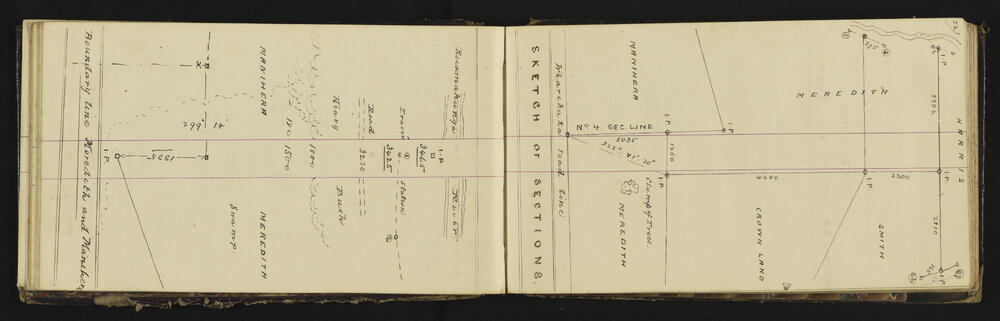 Boundary line Meredith and Manihera
I.P
1338
X
299° 14'
MANIHERA
MEREDITH
Swamp
180
1500
1800
Heavy
Bush
Road
3230
Travse
Station
3425
I-P
3465
Ruamahunga
River
SKETCH OF SECTIONS.
Wharekaka road line
MANIHERA
No 4. SEC. LINE
5085
322° 41' 30"
I.P.
1250
I.P
Clump of Trees
MEREDITH
I.P.
4280
CROWN LAND
MEREDITH
I.P
2300
SMITH
HARRIS
I.P
3282
2810
I.P
22